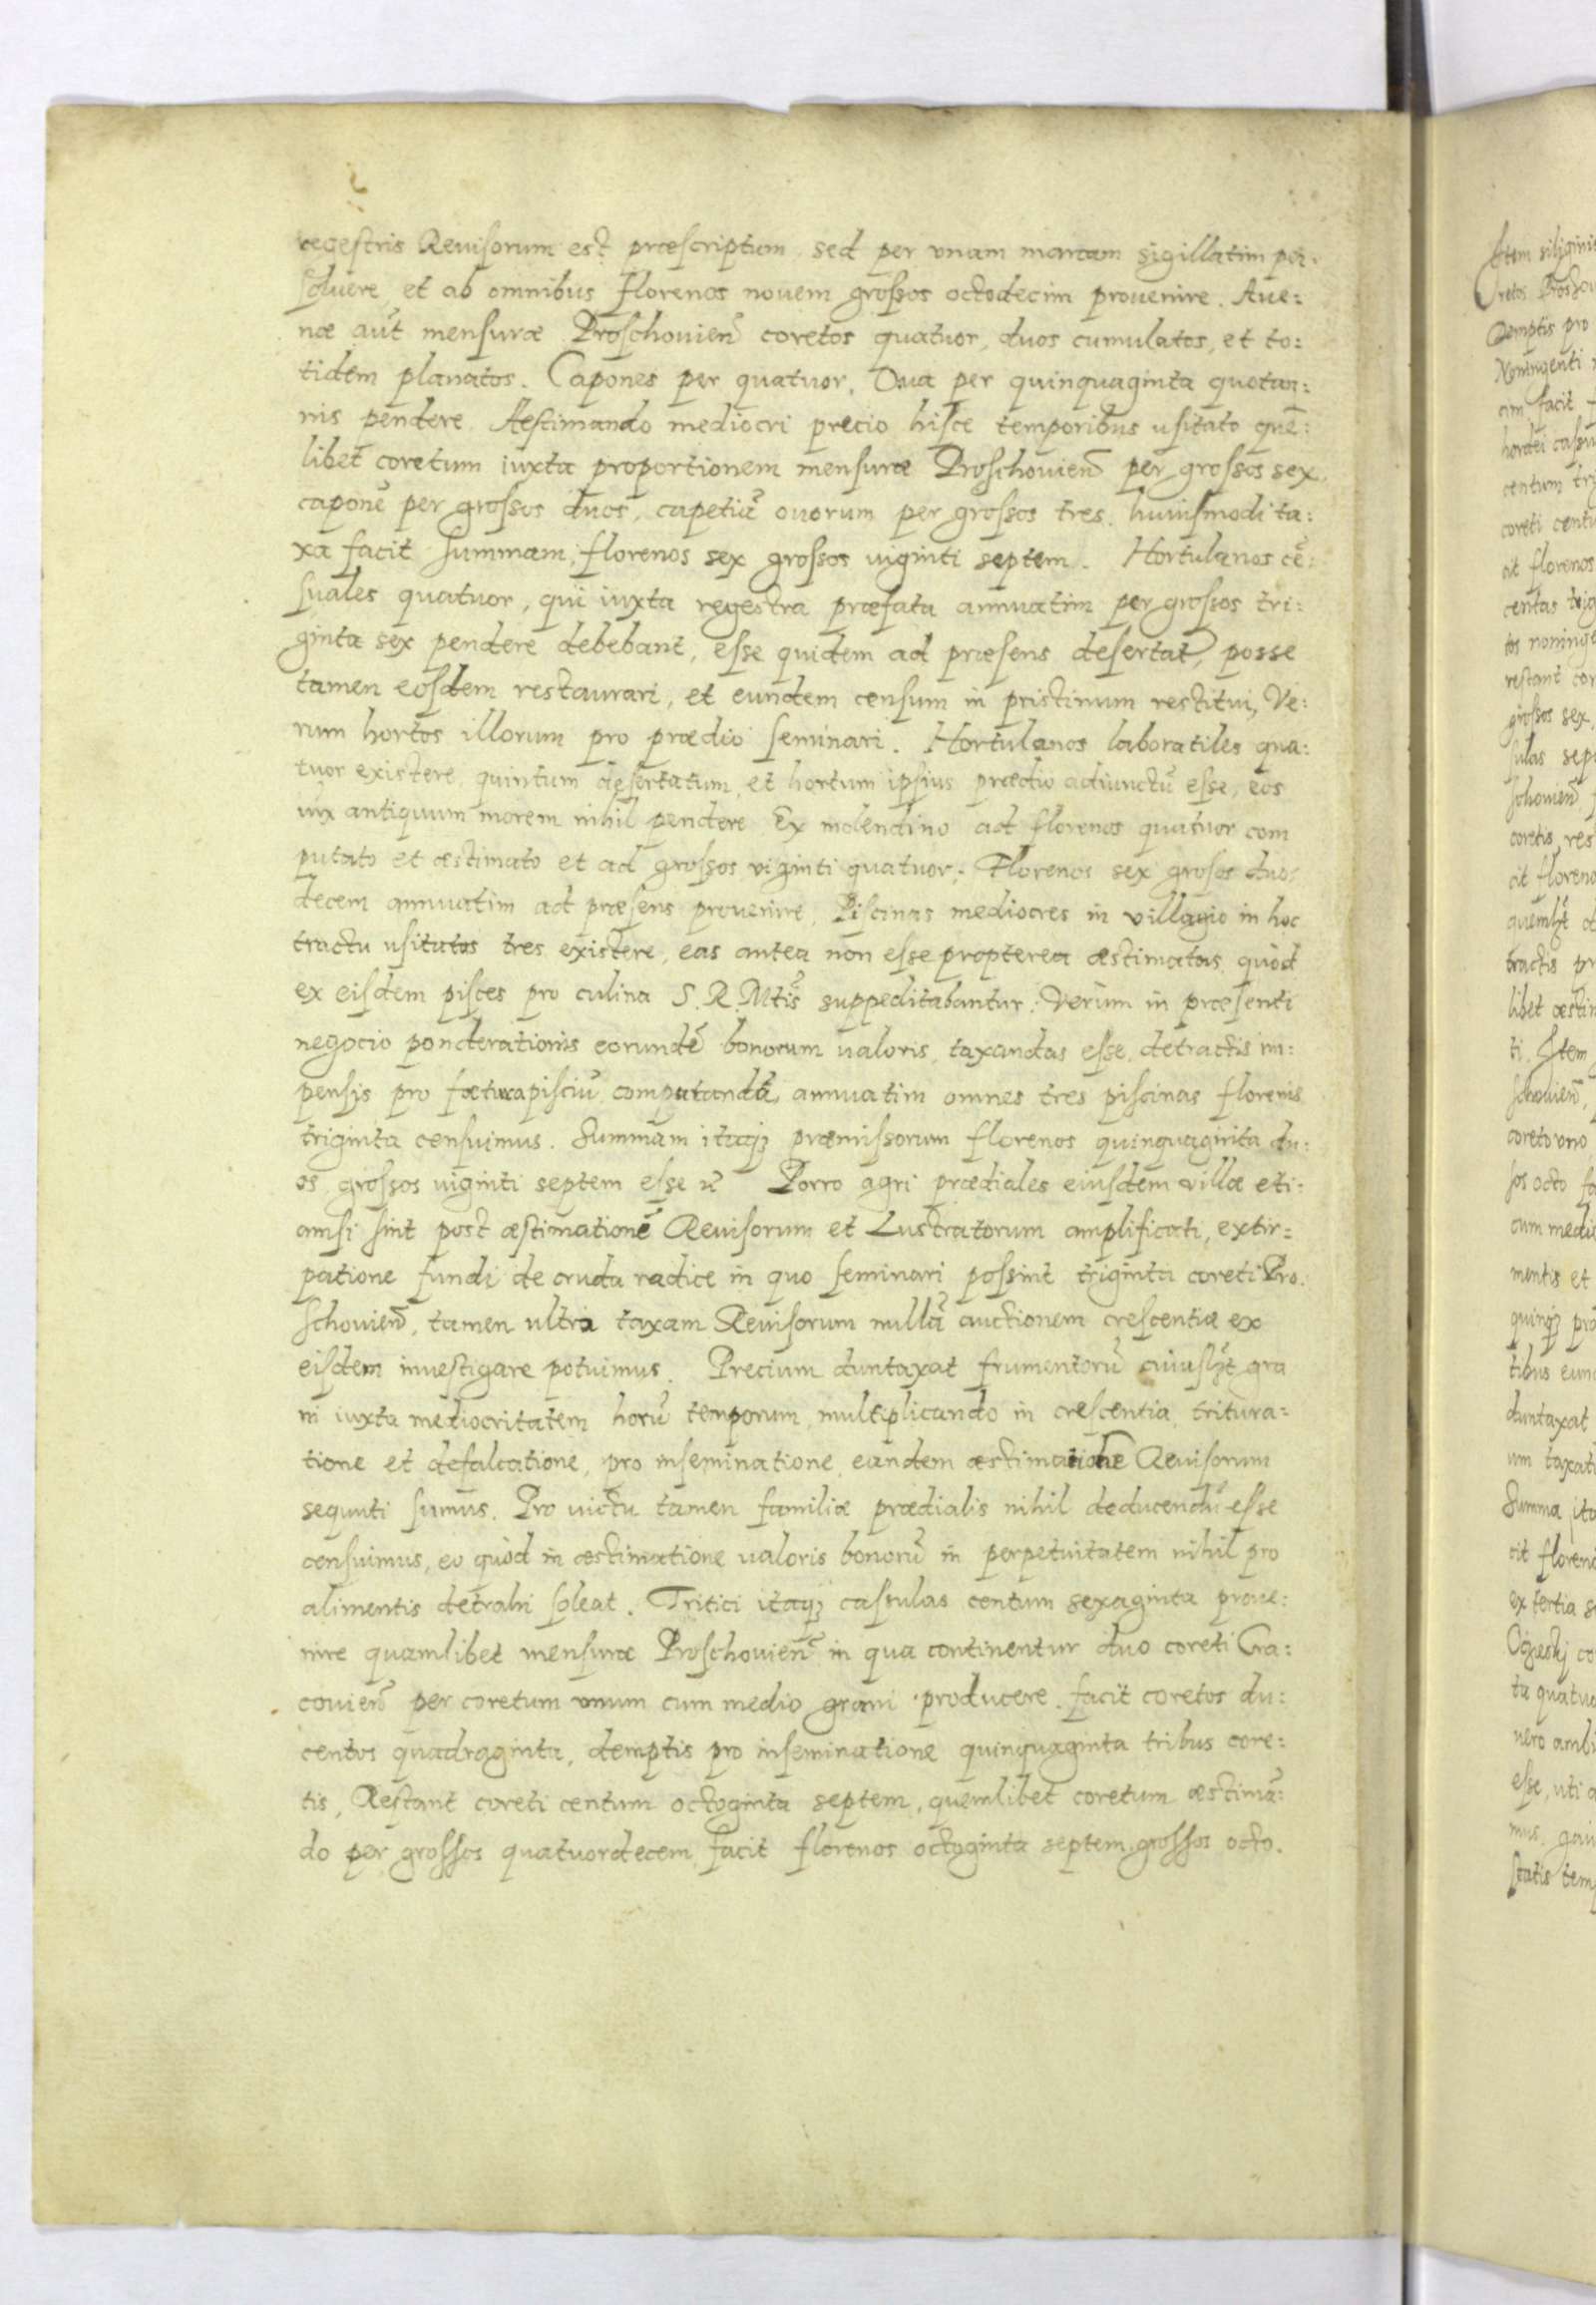 regestris Reuisorum est præscriptum, sed per vnam marcam sigillatim per:
soluere, et ab omnibus florenos nouem grossos octodecim prouenire. Aue:
næ aut̃ mensuræ Proschouien̄ coretos quatuor, duos cumulatos, et to:
tidem planatos. Capones per quatuor. Oua per quinquaginta quotan:
nis pendere. Aestimando mediocri precio hisce temporibus usitato quē:
libet coretum iuxta proportionem mensuræ Proschouien̄ per grossos sex,
caponē per grossos duos, capetiā ouorum per grossos tres. huiusmodi ta:
xa facit summam, florenos sex grossos viginti septem. Hortulanos cē:
suales quatuor, qui iuxta regestra præfata annuatim per grossos tri:
ginta sex pendere debebant, esse quidem ad præsens desertat, posse
tamen eosdem restaurari, et eundem censum in pristinum restitui, Ve:
rum hortos illorum pro prædio seminari. Hortulanos laboratiles qua:
tuor existere, quintum desertatum, et hortum ipsius prædio adiunctū esse, eos
iux antiquum morem nihil pendere. Ex molendino ad florenos quatuor com
putato et æstimato et ad grossos viginti quatuor, Florenos sex grosos duo:
decem annuatim ad præsens prouenire. Piscinas mediocres in villagio in hoc
tractu usitatas tres existere, eas antea non esse propterea æstimatas, quòd
ex eisdem pisces pro culina S. R. Mtis̃ suppeditabantur. Verùm in præsenti
negocio ponderationis eorundē bonorum valoris, taxandas esse, detractis im:
pensis pro fœtura pisciū computanda, annuatim omnes tres piscinas florenis
triginta censuimus. Summam itaqȝ præmissorum florenos quinquaginta du:
os grossos viginti septem esse Porro agri prædiales eiusdem villæ eti:
amsi sint post æstimationē Reuisorum et Lustratorum amplificati, extir:
patione fundi de cruda radice in quo seminari possint triginta coreti Pro.
schouien̄, tamen ultra taxam Reuisorum nullā auctionem crescentiæ ex
eisdem inuestigare potuimus. Precium duntaxat frumentorū cuiuslȝt gra
ni iuxta mediocritatem horū temporum, multiplicando in crescentia, tritura:
tione et defalcatione, pro inseminatione, eandem æstimationē Reuisorum
sequuti sumus. Pro victu tamen familiæ prædialis nihil deducendū esse
censuimus, eo quòd in æstimatione valoris bonorū in perpetuitatem nihil pro
alimentis detrahi soleat. Tritici itaqȝ cassulas centum sexaginta proue:
nire quamlibet mensuræ Proschouien̄ in qua continentur duo coreti Cra:
couien̄ per coretum vnum cum medio grani producere. facit coretos du:
centos quadraginta, demptis pro inseminatione quinquaginta tribus core:
tis, Restant coreti centum octoginta septem, quemlibet coretum æstimā:
do per grossos quatuordecem, facit florenos octoginta septem grossos octo.